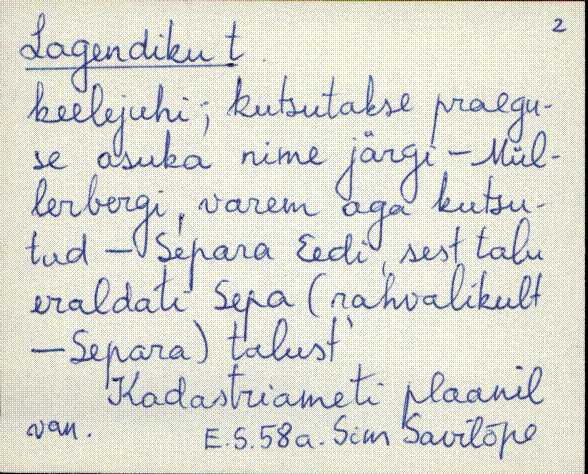 2
Lagendiku t
keelejuhi; kutsutakse praegu-
se asuka nime järgi – Mül-
lerbergi, varem aga kutsu-
tud – Separa Eedi, sest talu
eraldati Sepa (rahvalikult
– Separa) talust
Kadastriameti plaanil
van. E.S.58a. Siim Savilõpe